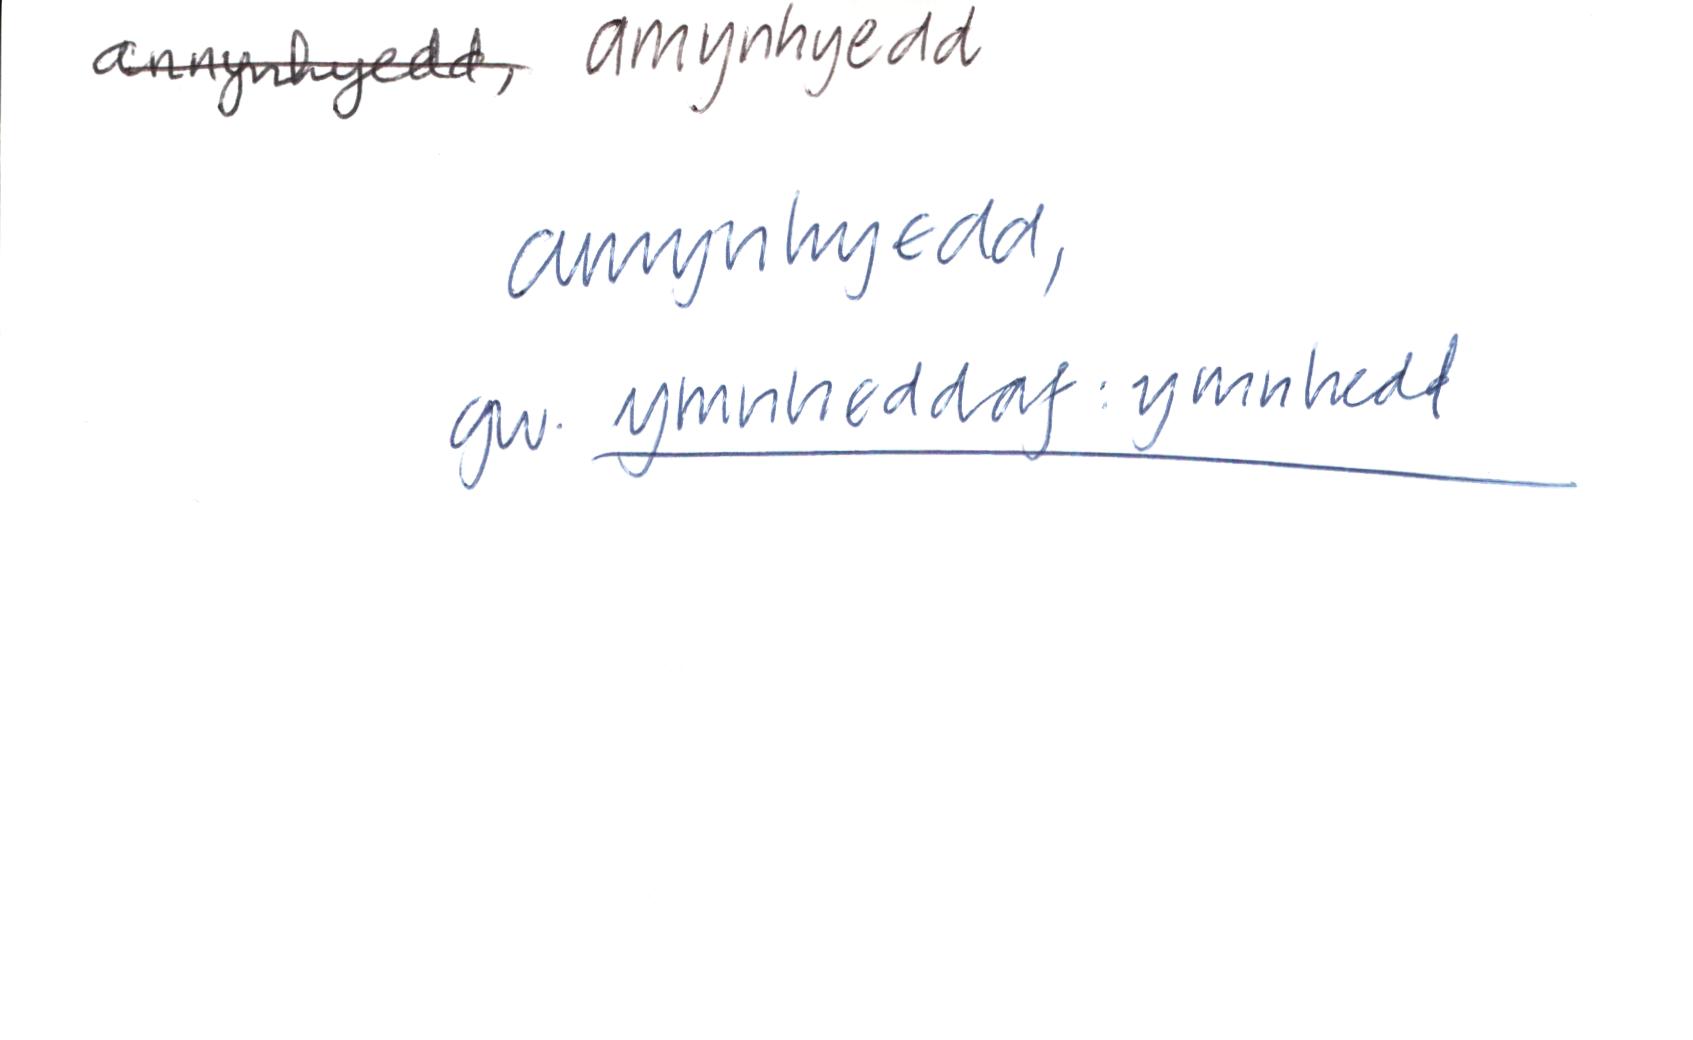 annynhyedd, amynhyedd
amynhyedd,
gw. ymnheddaf : ymnhedd